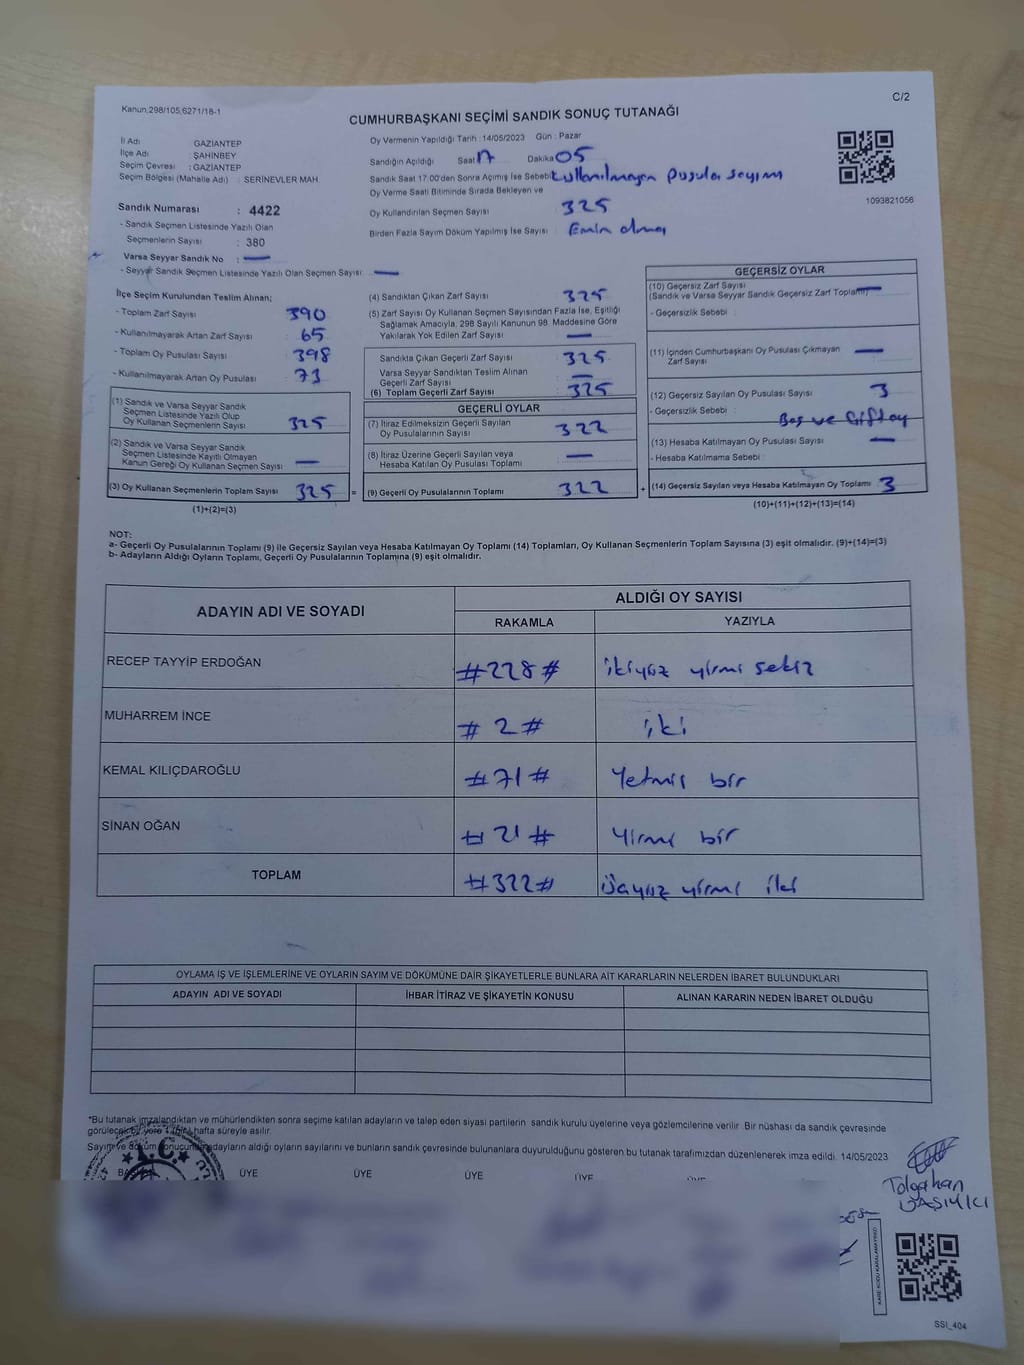 Kanun,298/105,6271/18-1
C/2
CUMHURBAŞKANI SEÇİMİ SANDIK SONUÇ TUTANAĞI
İl Adı GAZİANTEP
İlçe Adı : ŞAHİNBEY
Seçim Çevresi : GAZİANTEP
Seçim Bölgesi (Mahalle Adı) : SERİNEVLER MAH.
Oy Vermenin Yapıldığı Tarih : 14/05/2023 Gün : Pazar
Sandığın Açıldığı Saat 17 Dakika 05
Sandık Saat 17:00'den Sonra Açımış İse Sebebi kullanılmayan pusula sayımı
Oy Verme Saati Bitiminde Sırada Bekleyen ve
Oy Kullandırılan Seçmen Sayısı : 325
Birden Fazla Sayım Döküm Yapılmış İse Sayısı : Emin olma
1093821056
Sandık Numarası : 4422
- Sandık Seçmen Listesinde Yazılı Olan
Seçmenlerin Sayısı : 380
Varsa Seyyar Sandık No : —
- Seyyar Sandık Seçmen Listesinde Yazılı Olan Seçmen Sayısı: —
İlçe Seçim Kurulundan Teslim Alınan;
- Toplam Zarf Sayısı : 390
- Kullanılmayarak Artan Zarf Sayısı : 65
- Toplam Oy Pusulası Sayısı : 398
- Kullanılmayarak Artan Oy Pusulası : 73
(1) Sandık ve Varsa Seyyar Sandık
Seçmen Listesinde Yazılı Olup
Oy Kullanan Seçmenlerin Sayısı : 325
(2) Sandık ve Varsa Seyyar Sandık
Seçmen Listesinde Kayıtlı Olmayan
Kanun Gereği Oy Kullanan Seçmen Sayısı : —
(3) Oy Kullanan Seçmenlerin Toplam Sayısı : 325 =
(1)+(2)=(3)
(4) Sandıktan Çıkan Zarf Sayısı : 325
(5) Zarf Sayısı Oy Kullanan Seçmen Sayısından Fazla İse, Eşitliği
Sağlamak Amacıyla, 298 Sayılı Kanunun 98. Maddesine Göre
Yakılarak Yok Edilen Zarf Sayısı : —
Sandıkta Çıkan Geçerli Zarf Sayısı : 325
Varsa Seyyar Sandıktan Teslim Alınan
Geçerli Zarf Sayısı : —
(6) Toplam Geçerli Zarf Sayısı : 325
GEÇERLİ OYLAR
(7) İtiraz Edilmeksizin Geçerli Sayılan
Oy Pusulalarının Sayısı : 322
(8) İtiraz Üzerine Geçerli Sayılan veya
Hesaba Katılan Oy Pusulası Toplamı : —
(9) Geçerli Oy Pusulalarının Toplamı : 322 +
GEÇERSİZ OYLAR
(10) Geçersiz Zarf Sayısı : —
(Sandık ve Varsa Seyyar Sandık Geçersiz Zarf Toplamı)
- Geçersizlik Sebebi :
(11) İçinden Cumhurbaşkanı Oy Pusulası Çıkmayan
Zarf Sayısı : —
(12) Geçersiz Sayılan Oy Pusulası Sayısı : 3
- Geçersizlik Sebebi : Boş ve Çift oy
(13) Hesaba Katılmayan Oy Pusulası Sayısı : —
- Hesaba Katılmama Sebebi :
(14) Geçersiz Sayılan veya Hesaba Katılmayan Oy Toplamı : 3
(10)+(11)+(12)+(13)=(14)
NOT:
a- Geçerli Oy Pusulalarının Toplamı (9) ile Geçersiz Sayılan veya Hesaba Katılmayan Oy Toplamı (14) Toplamları, Oy Kullanan Seçmenlerin Toplam Sayısına (3) eşit olmalıdır. (9)+(14)=(3)
b- Adayların Aldığı Oyların Toplamı, Geçerli Oy Pusulalarının Toplamına (9) eşit olmalıdır.
ADAYIN ADI VE SOYADI ALDIĞI OY SAYISI
RAKAMLA YAZIYLA
RECEP TAYYİP ERDOĞAN #228# ikiyüz yirmi sekiz
MUHARREM İNCE #2# iki
KEMAL KILIÇDAROĞLU #71# Yetmiş bir
SİNAN OĞAN #21# Yirmi bir
TOPLAM #322# Üçyüz yirmi iki
OYLAMA İŞ VE İŞLEMLERİNE VE OYLARIN SAYIM VE DÖKÜMÜNE DAİR ŞİKAYETLERLE BUNLARA AİT KARARLARIN NELERDEN İBARET BULUNDUKLARI
ADAYIN ADI VE SOYADI İHBAR İTİRAZ VE ŞİKAYETİN KONUSU ALINAN KARARIN NEDEN İBARET OLDUĞU
*Bu tutanak imzalandıktan ve mühürlendikten sonra seçime katılan adayların ve talep eden siyasi partilerin sandık kurulu üyelerine veya gözlemcilerine verilir. Bir nüshası da sandık çevresinde
görülecek bir yere 1 (bir) hafta süreyle asılır.
Sayım ve döküm sonucunda adayların aldığı oyların sayılarını ve bunların sandık çevresinde bulunanlara duyurulduğunu gösteren bu tutanak tarafımızdan düzenlenerek imza edildi. 14/05/2023
T.C.
ÜYE ÜYE ÜYE ÜYE
Tolgahan
KARE KODU KARALAMAYINIZ
SSI_404